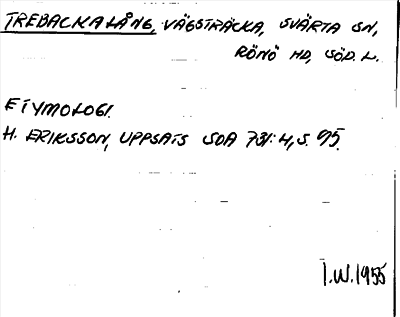 TREBACKALÅNG, VÄGSTRÄCKA, SVÄRTA SN,
RÖNÖ HD, SÖD. L.
ETYMOLOGI.
H. ERIKSSON, UPPSATS SOA 731:4, S. 95.
I.W. 1955